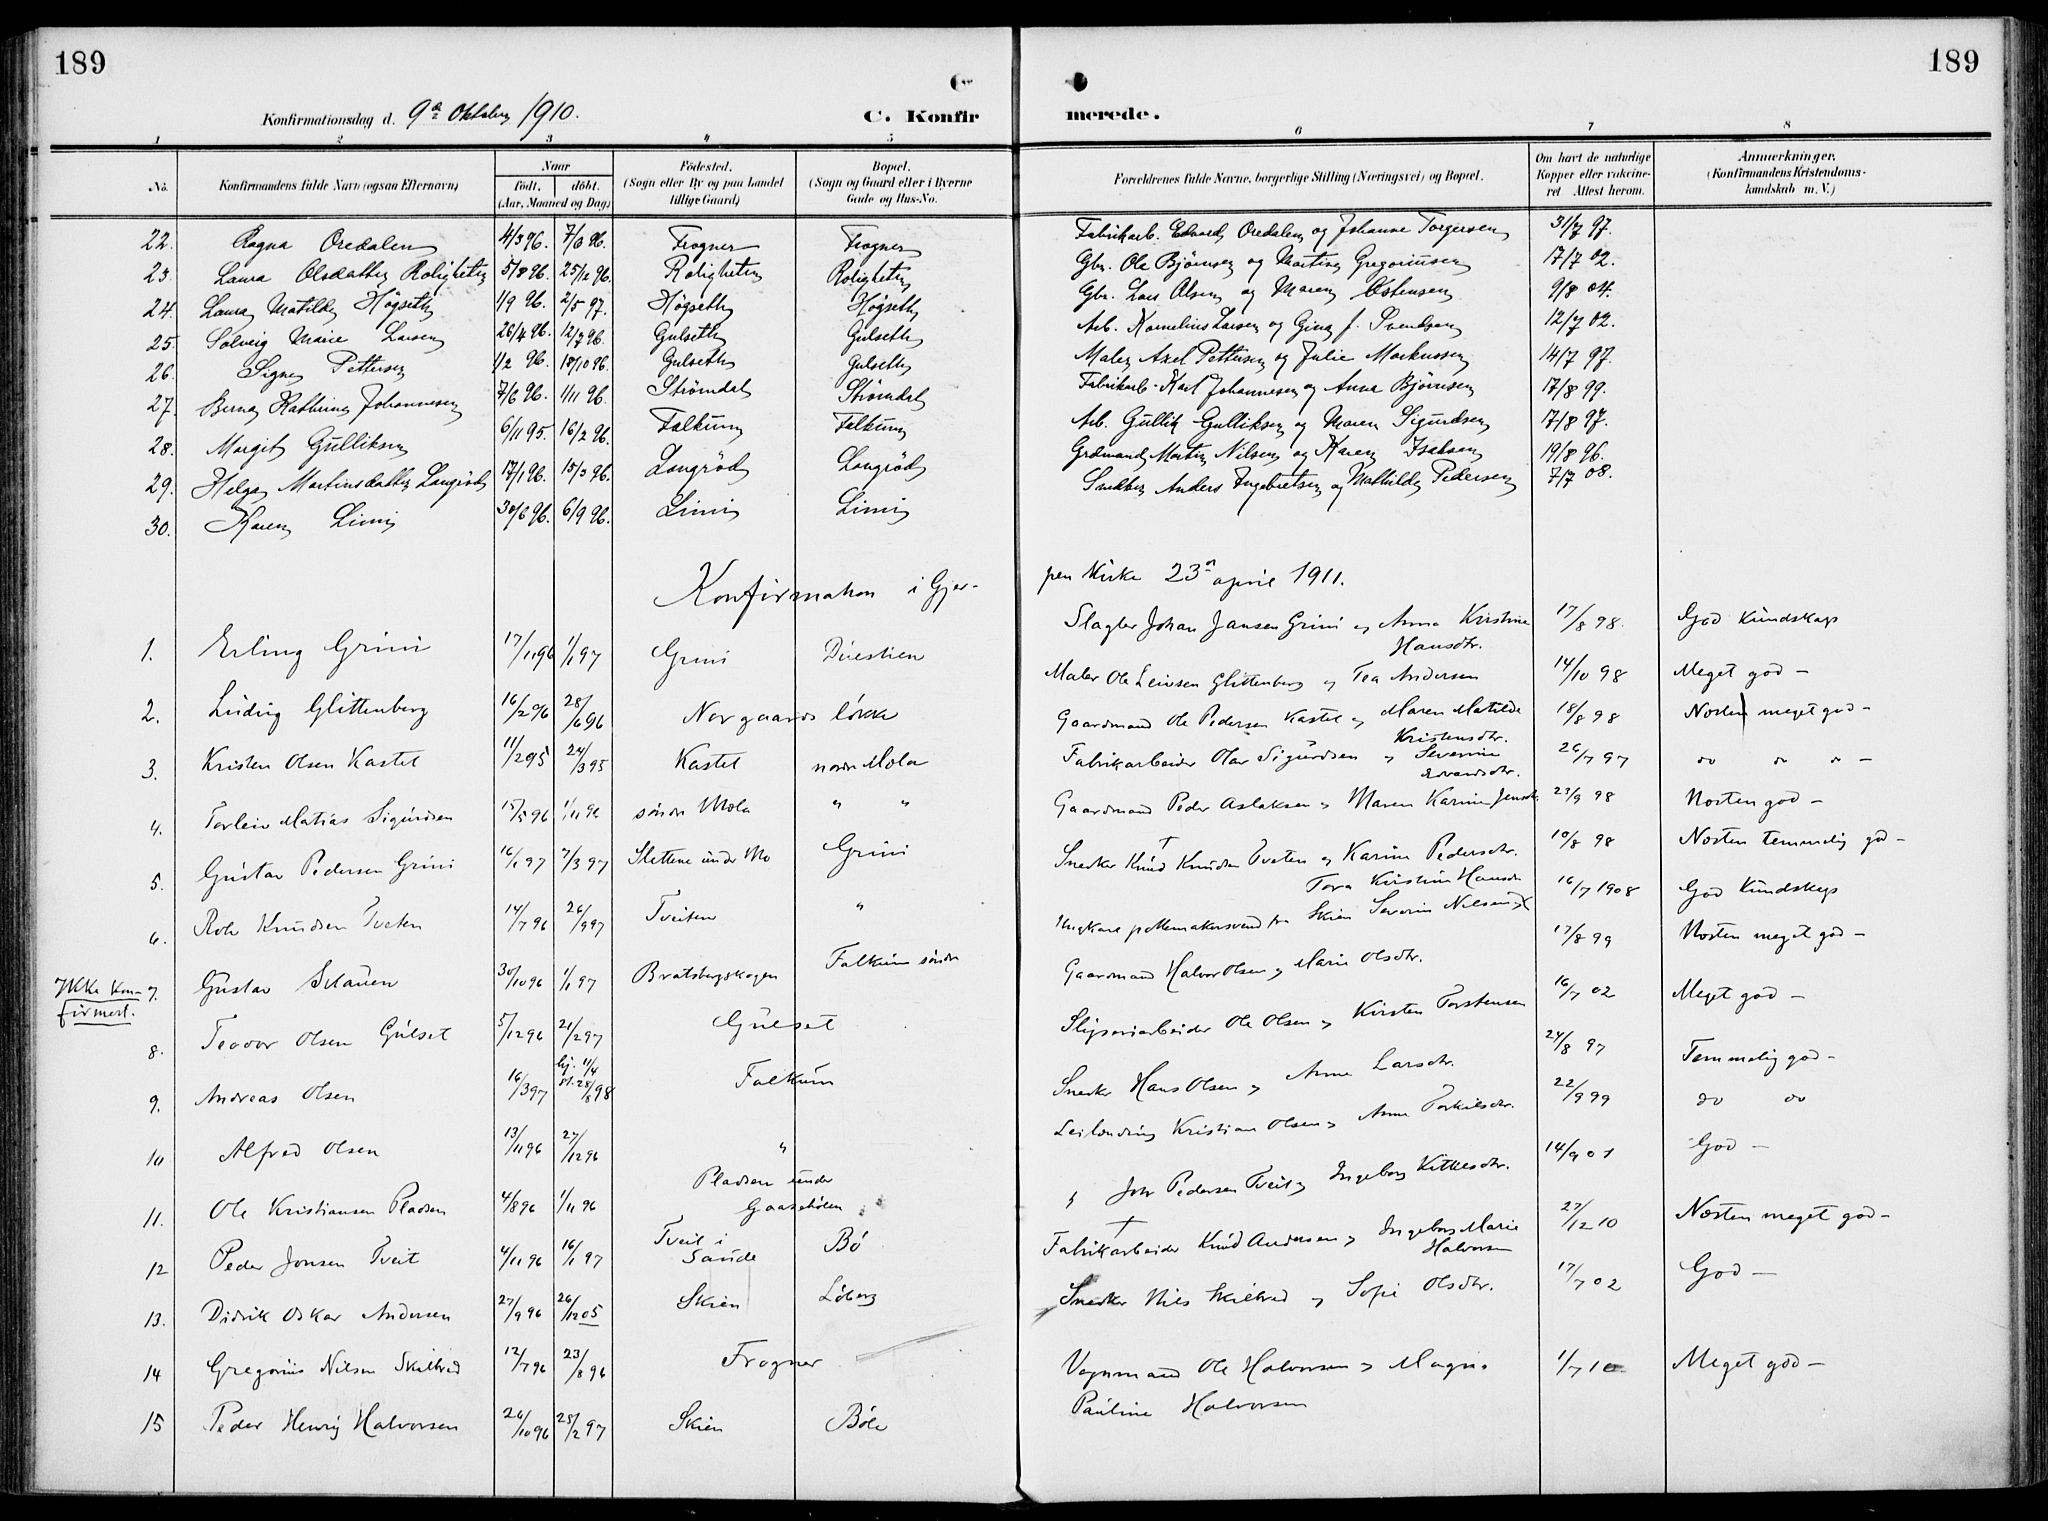 189
189
Konfirmationsdag d. 9de Oktober 1910.
C. Konfir merede.
1 2 3 4 5 6 7 8
No. Konfirmandens fulde Navn (ogsaa Efternavn) Naar födt. döbt. (Aar, Maaned og Dag) Födested. (Sogn eller By og paa Landet tillige Gaard) Bopæl. (Sogn og Gaard eller i Byerne Gade og Hus-No. Forældrenes fulde Navne, borgerlige Stilling (Næringsvei) og Bopæl. Om havt de naturlige Kopper eller vakcineret. Attest herom. Anmerkninger. (Konfirmandens Kristendomskundskab m. V.)
22. Ragna Oredalen 4/3 96. 7/6 96. Frogner Frogner Fabrikarb. Edvard Oredalen og Johanne Torgersen 31/7 97.
23. Laura Olsdatter Roligheten 5/8 96. 25/12 96. Roligheten Roligheten Gbr. Ole Bjørnsen og Martine Gregoriusen 17/7 02.
24. Laura Matilde Högseth 1/9 96. 2/5 97. Högseth Högseth Gbr. Lars Olsen og Maren Østensen 9/8 04.
25. Solveig Marie Larsen 26/4 96. 12/7 96. Gulseth Gulseth Arb. Kornelius Larsen og Gina f. Svendsen 12/7 02.
26. Signe Pettersen 1/2 96. 18/10 96. Gulseth Gulseth Maler Axel Pettersen og Julie Markussen 14/7 97.
27. Berna Kathrine Johannesen 7/6 96. 1/11 96. Strömdal Strömdal Fabrikarb. Karl Johannesen og Anna Bjørnsen 17/8 99.
28. Margit Gulliksen 6/11 95. 16/2 96. Falkum Falkum Arb. Gullik Gulliksen og Maren Sigurdsen 17/8 97.
29. Helga Martinsdatter Langröd 17/1 96. 15/3 96. Langröd Langröd Grdmand Martin Nilsen og Karen Isaksen 19/8 96.
30. Karen Limi 30/6 96. 6/9 96. Limi Limi Snekker Anders Ingebretsen og Mathilde Pedersen 7/7 08.
Konfirmation i Gjerpen Kirke 23de april 1911.
1. Erling Grini 17/11 96 1/1 97 Grini Duestien Slagter Johan Jansen Grini og Anna Kristine Hansdtr. 17/8 98. God Kundskap
2. Ludvig Glittenberg 16/2 96 28/6 96 Norgaards løkka Maler Ole Leivsen Glittenberg og Tea Andersen 14/10 98 Meget god —
3. Kristen Olsen Kastet 11/2 95 24/3 95 Kastet nordr Mæla Gaardmand Ole Pedersen Kastet og Maren Matilde Kristensdtr. 18/8 98 Næsten meget god —
4. Torleiv Matias Sigurdsen 15/5 96 1/11 96 söndr Mæla " " Fabrikarbeider Olav Sigurdsen og Severine Edvardsdtr. 26/7 97 do do do —
5. Gustav Pedersen Grini 16/1 97 7/3 97 Slettene under Mo Grini Gaardmand Peder Aslaksen og Maren Karine Jensdtr. 23/9 98 Næsten god —
6. Rolv Knudsen Tveten 14/7 96 26/9 97 Tveiten " Snedker Knud † Knudsen Tveten og Karine Pedersdtr. 10/8 98 Næsten temmelig god —
Ikke konfirmert. 7. Gustav Stauen 30/10 96 1/1 97 Bratsbergskogen Falkum söndr Ungkarl pottemakersvend fra Skien Severin Nilsen og Tora Kirstine Hansdtr 16/7 1908 God Kundskap
8. Teodor Olsen Gulset 5/12 96 21/2 97 Gulset Gaardmand Halvor Olsen og Marie Olsdtr. 17/8 99 Næsten meget god —
9. Andreas Olsen 16/3 97 hj. 11/4 st. 28/8 98 Falkum Sliperiarbeider Ole Olsen og Kirsten Torstensen 16/7 02 Meget god —
10 Alfred Olsen 13/11 96 27/12 96 " Snedker Hans Olsen og Anne Larsdtr. 24/8 97 Temmelig god —
11. Ole Kristiansen Pladsen 4/8 96 1/11 96 Pladsen under Gaasehölen Leilænding Kristian Olsen og Anne Torkilsdtr. 22/9 99 do do
12 Peder Jonsen Tveit 4/11 96 16/1 97 Tveit i Saude Bö " Joh Pedersen Tveit og Ingeborg Kittilsdtr. 14/9 01 God —
13. Didrik Oskar Andersen 27/9 96 26/12 05 Skien Löberg Fabrikarbeider † Knud Andersen og Ingeborg Marie Halvorsen 27/12 10 Næsten meget god —
14 Gregorius Nilsen Skilbred 12/7 96 23/8 96 Frogner Snedker Nils Skilbred og Sofie Olsdtr. 17/7 02 God —
15 Peder Henry Halvorsen 26/10 96 25/2 97 Skien Böle Vognmand Ole Halvorsen og Magna Pauline Halvorsen 1/7 10 Meget god —